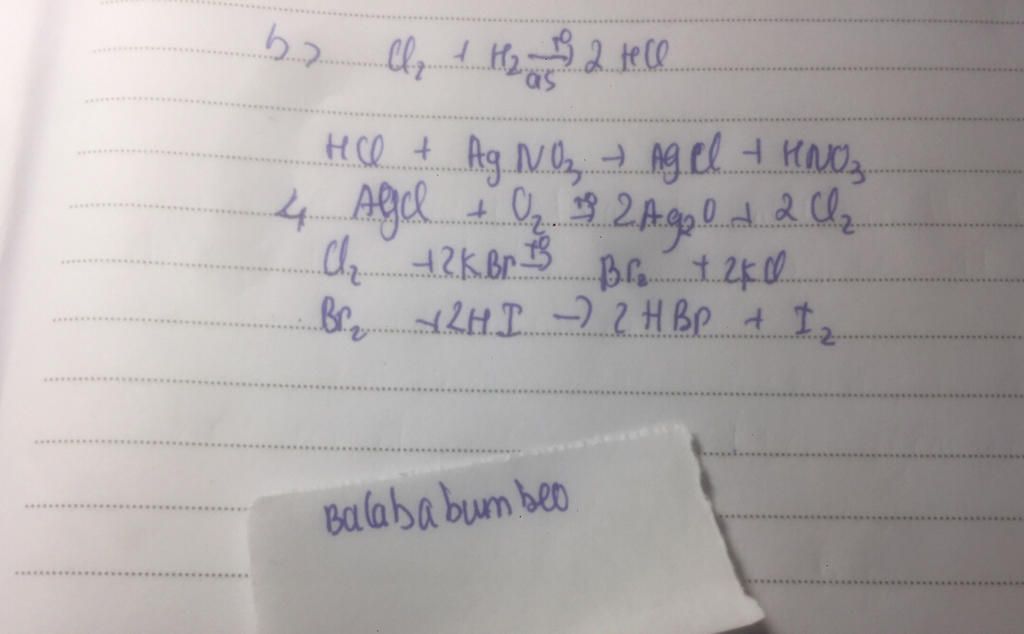 b> Cl₂ + H₂ →(t⁰, as) 2 HCl
HCl + AgNO₃ → AgCl + HNO₃
4 AgCl + O₂ →(t⁰) 2Ag₂O + 2Cl₂
Cl₂ + 2KBr →(t⁰) Br₂ + 2KCl
Br₂ + 2HI → 2HBr + I₂
Balababumbeo